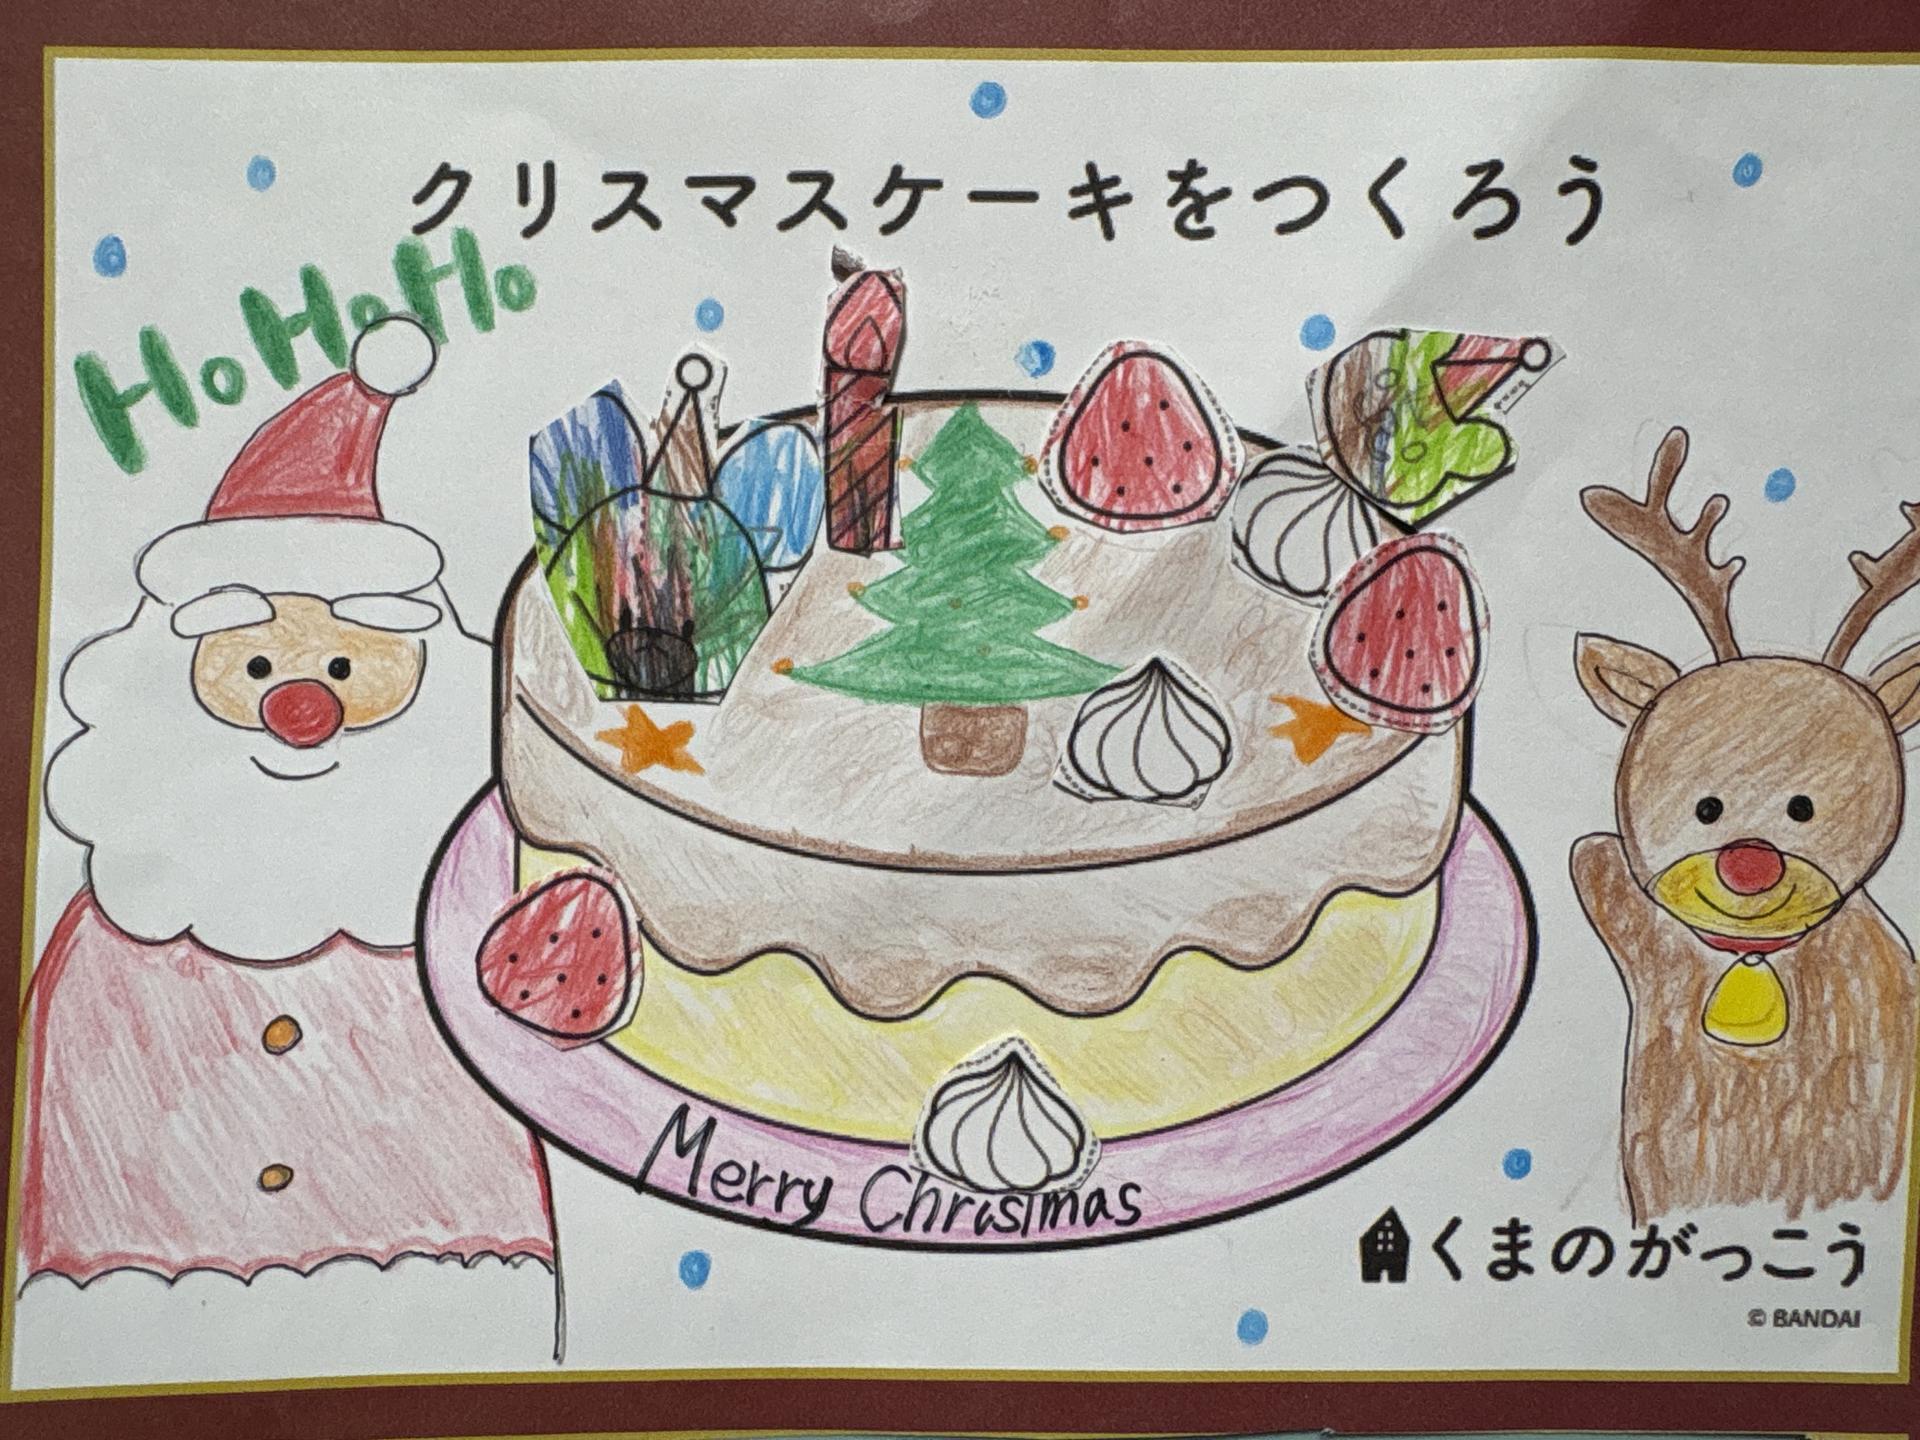 クリスマスケーキをつくろう
HoHoHo
Merry Christmas
くまのがっこう
© BANDAI